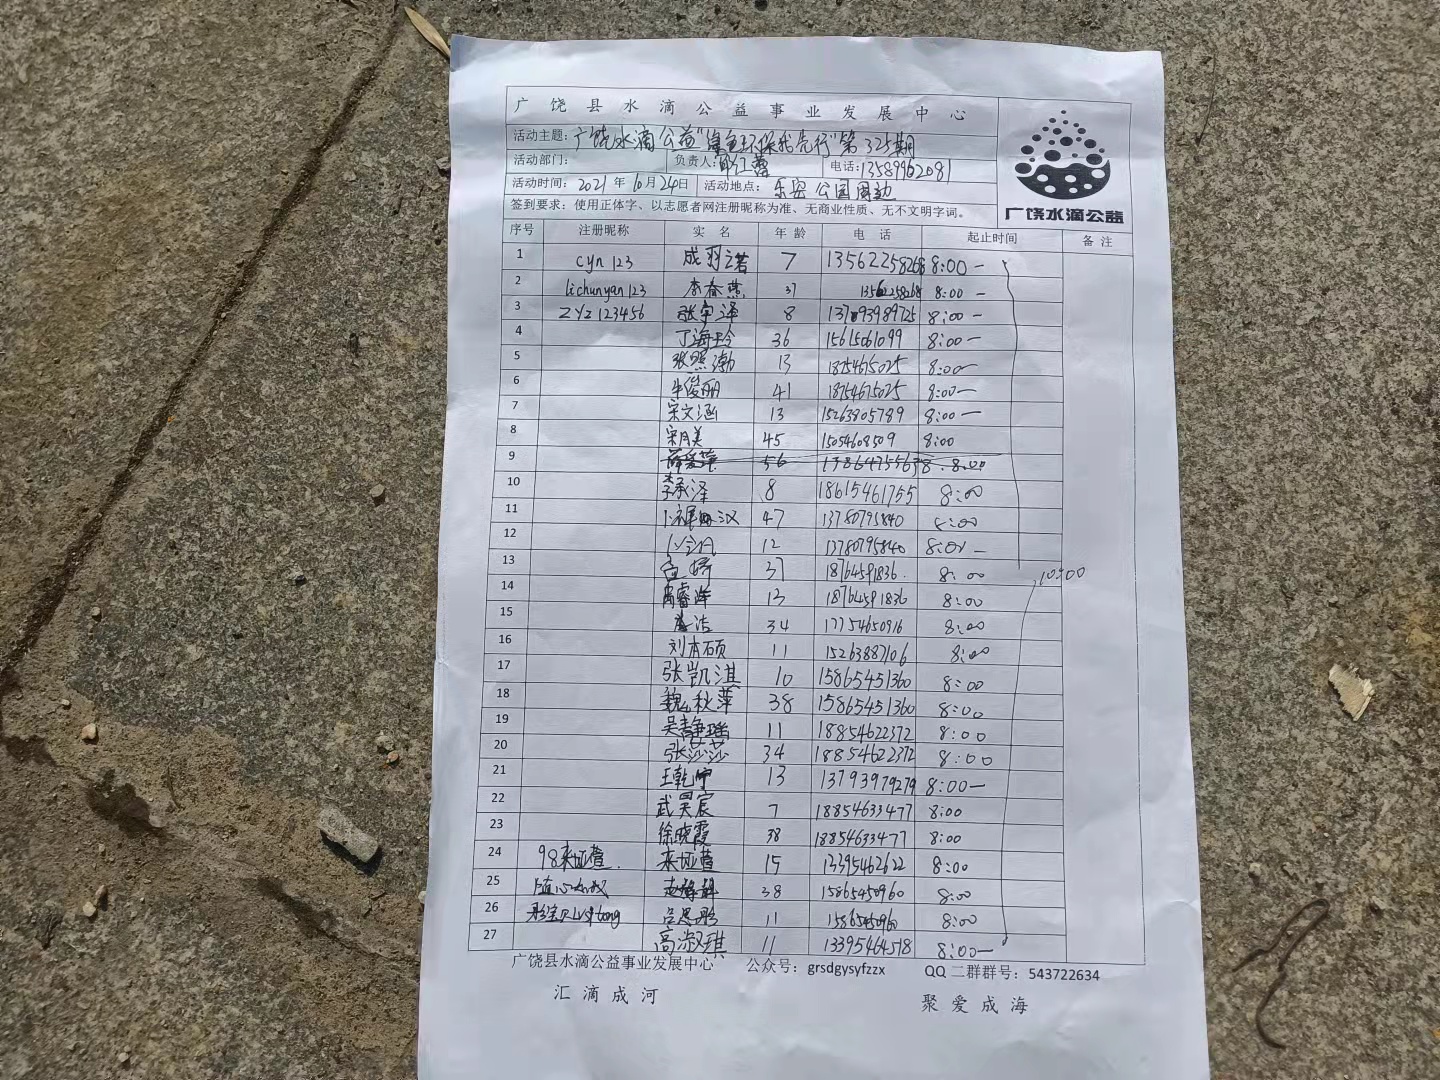 广饶县水滴公益事业发展中心
活动主题：广饶水滴公益"绿色环保我先行"第325期
活动部门： 负责人： 电话：13589962081
活动时间：2021年10月24日 活动地点：乐安公园周边
签到要求：使用正体字、以志愿者网注册昵称为准、无商业性质、无不文明字词。
广饶水滴公益
序号 注册昵称 实名 年龄 电话 起止时间 备注
1 cyn123 成羽若 7 13562258268 8:00—
2 lichunyan123 李春燕 37 13562258268 8:00—
3 ZYZ123456 张宇泽 8 13793989725 8:00—
4 丁海玲 36 15615061099 8:00—
5 张照渤 13 18754675025 8:00—
6 牛俊丽 41 18754675025 8:00—
7 宋文涵 13 15263805789 8:00—
8 宋月美 45 15054608509 8:00
9 56 8:00
10 李承泽 8 18615461755 8:00
11 47 13780795840 8:00
12 12 13780795840 8:00—
13 37 18764591836 8:00
14 13 18764591836 8:00
10:00
15 李洁 34 17754650916 8:00
16 刘本硕 11 15263887106 8:00
17 张凯淇 10 15865451360 8:00
18 魏秋萍 38 15865451360 8:00
19 吴静瑶 11 18854622372 8:00
20 张莎莎 34 18854622372 8:00
21 王乾宇 13 13793979279 8:00—
22 武昊宸 7 18854633477 8:00
23 徐晓霞 38 18854633477 8:00
24 15 13395462622 8:00
25 38 15865450960 8:00
26 吕思彤 11 15865450960 8:00
27 高淑琪 11 13395464518 8:00—
广饶县水滴公益事业发展中心 公众号：grsdgysyfzzx QQ二群群号：543722634
汇滴成河 聚爱成海